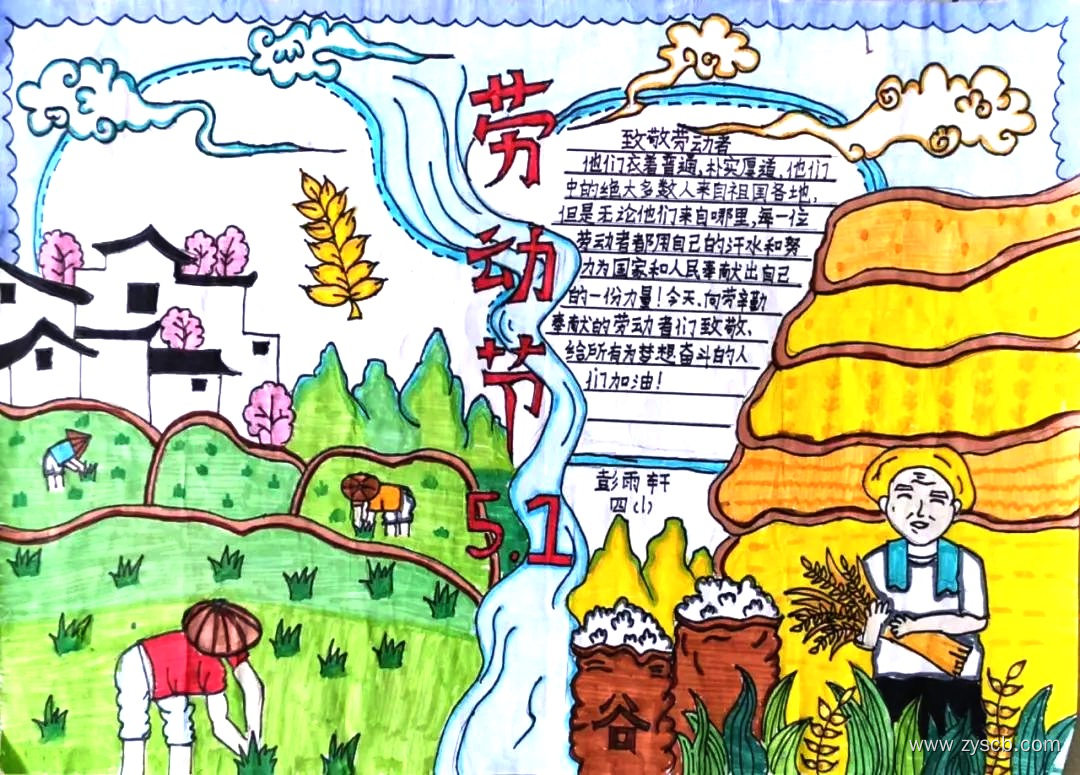 劳动节
5.1
致敬劳动者
他们衣着普通,朴实厚道,他们
中的绝大多数人来自祖国各地,
但是无论他们来自哪里,每一位
劳动者都用自己的汗水和努
力为国家和人民奉献出自己
的一份力量!今天,向劳辛勤
奉献的劳动者们致敬、
给所有为梦想奋斗的人
们加油!
彭雨轩
四(1)
谷
www.zyscb.com